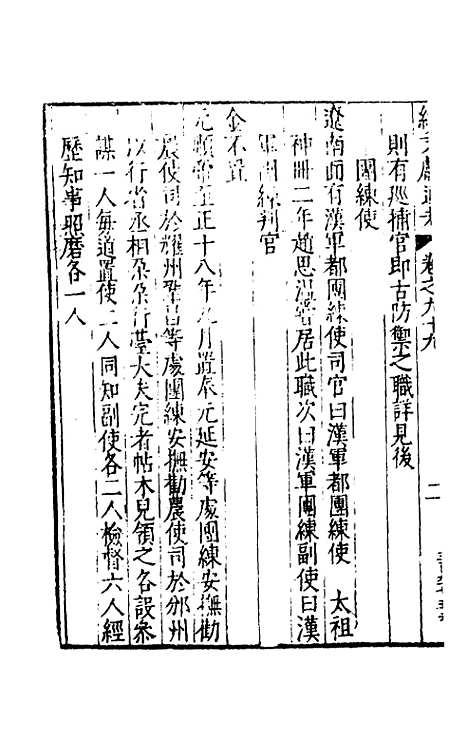 續文獻通考 卷之九十九 二
則有廵捕官即古防禦之職詳見後
團練使
遼南面有漢軍都團練使司官曰漢軍都團練使 太祖
神冊二年趙思溫嘗居此職次曰漢軍團練副使曰漢
軍團練判官
金不置
元順帝至正十八年九月置奉元延安等處團練安撫勸
農使司於耀州鞏昌等處團練安撫勸農使司於邠州
以行省丞相朶朶行臺大夫完者帖木兒領之各設叅
謀一人每道置使二人同知副使各二人檢督六人經
歷知事照磨各一人